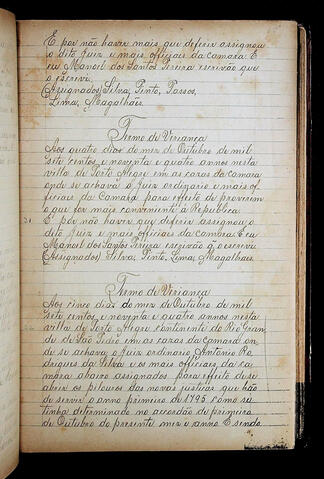 E por não haver mais que deferir assignou
o dito juiz e mais officiais da camara E
eu Manoel dos Santos Pereira escrivão que
o escrevi.
(Assignados) Silva, Pinto, Passos,
Lima, Magalhães.
Termo de Veriança
Aos quatro dias do mez de Outubro de mil
sete centos e noventa e quatro annos nesta
villa de Porto Alegre em as cazas da camara
onde se achava o juiz ordinario e mais of-
ficiais da Camara para effeito de proverem
o que for mais conveniente á Republica.
E por não haver que deferir assignou o
dito juiz e mais officiais da camara E eu
Manoel dos Santos Pereira escrivão q̃ o escrevi
(Assignados) Silva, Pinto, Lima, Magalhães.
Termo de Veriança
Aos cinco dias do mez de Outubro de mil
sete centos e noventa e quatro annos nesta
villa de Porto Alegre continente do Rio Gran
de de São Pedro em as cazas da camara on-
de se achava o juiz ordinario Antonio Ro
drigues da Silva e os mais officiais da ca-
mara abaixo assignados para effeito de se
abrir os pilouros das novas justiças que hão
de servir o anno primeiro de 1795 como se
tinha determinado no accordão de primeiro
de Outubro do presente mez e anno E sendo